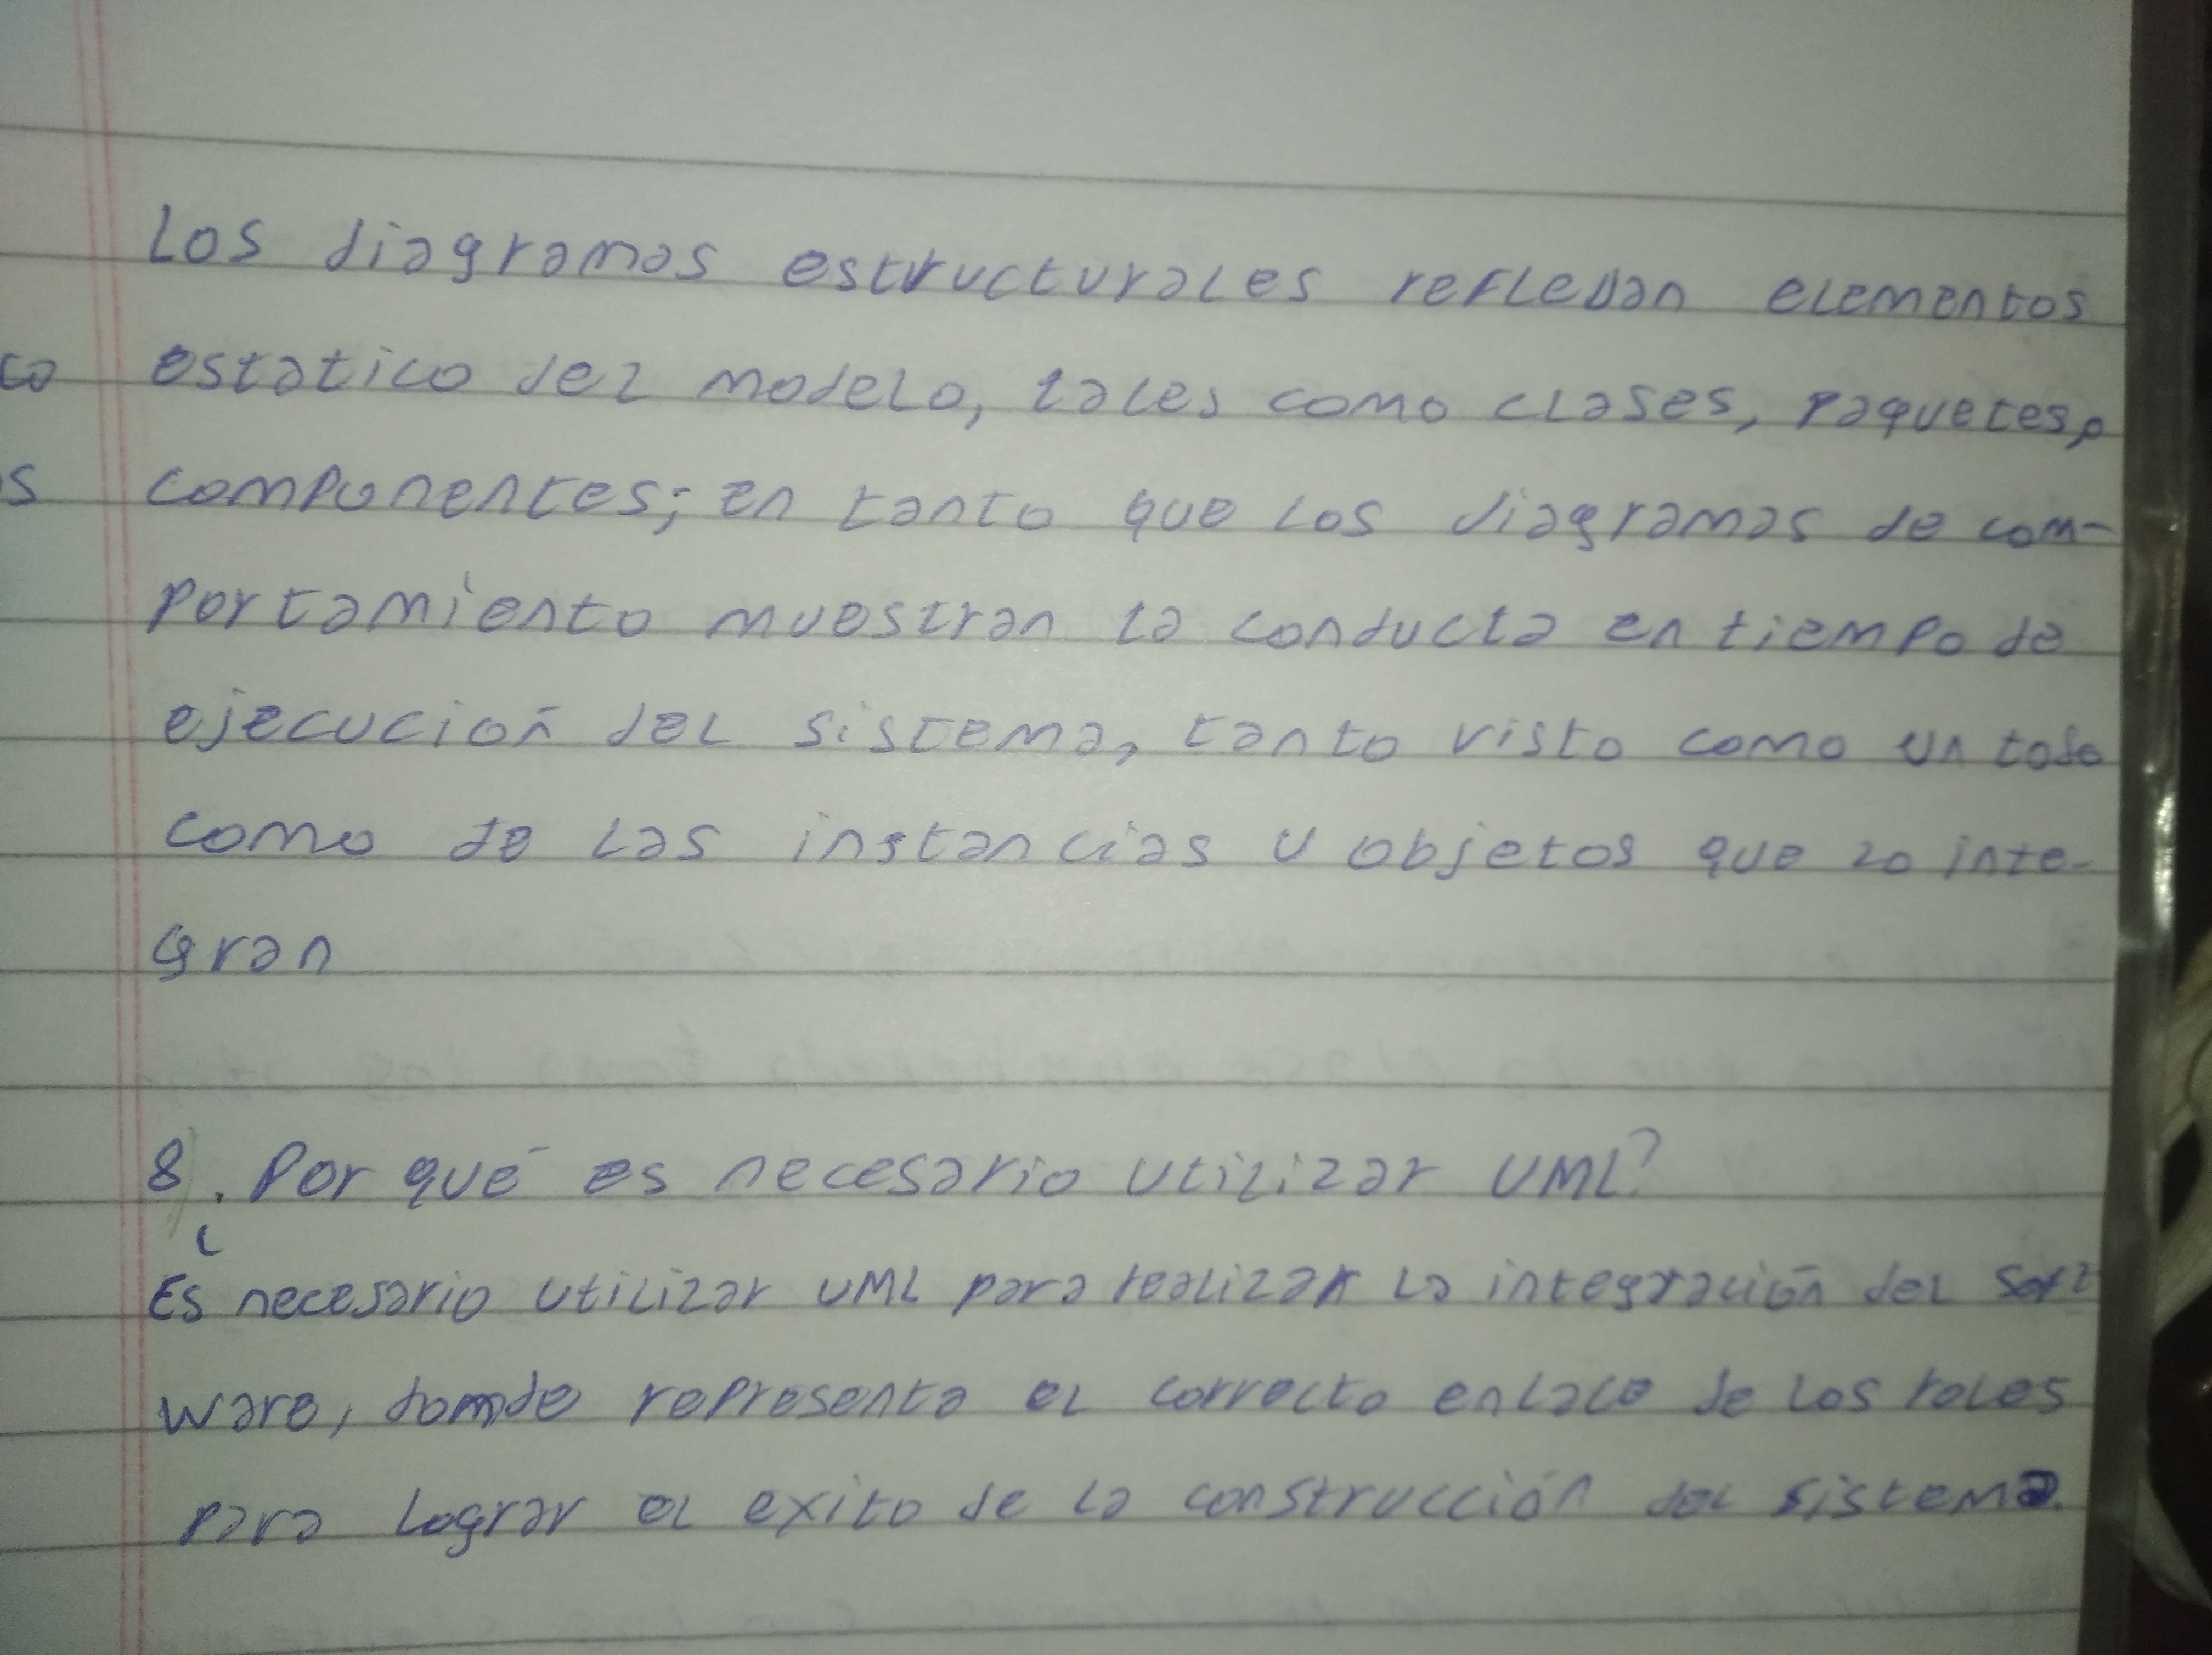 Los diagramas estructurales reflejan elementos
co estatico del modelo, tales como clases, paquetes,o
s componentes; en tanto que los diagramas de com-
portamiento muestran la conducta en tiempo de
ejecución del sistema, tanto visto como un todo
como de las instancias u objetos que lo inte-
gran
8. ¿Por qué es necesario utilizar UML?
Es necesario utilizar UML para realizar la integración del soft
ware, donde representa el correcto enlace de los roles
para lograr el exito de la construcción del sistema.